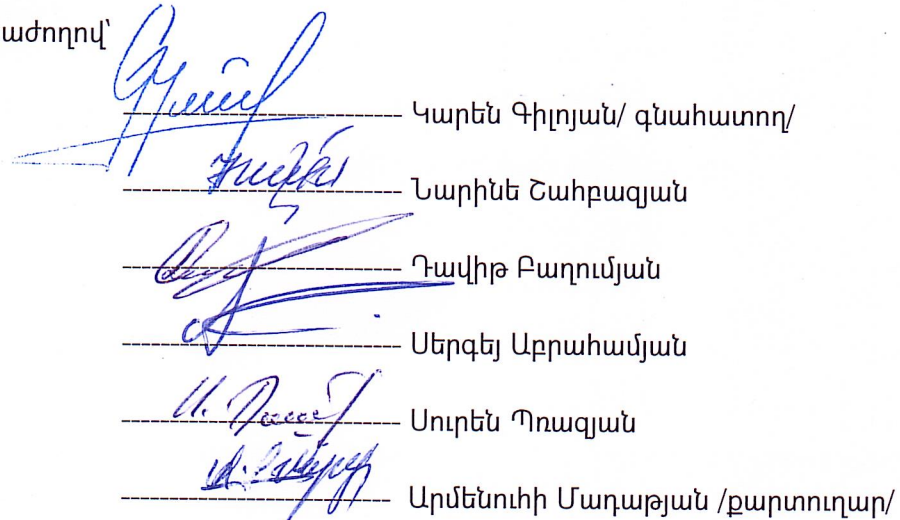 աժողով՝
Կարեն Գիլոյան/ գնահատող/
Նարինե Շահբազյան
Դավիթ Բաղումյան
Սերգեյ Աբրահամյան
Սուրեն Պռազյան
Արմենուհի Մադաթյան /քարտուղար/